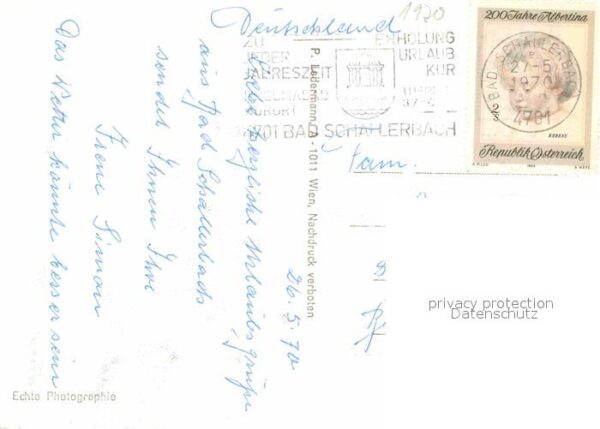 Deutschland
1970
26.5.70
Liebe herzliche Urlaubsgrüße
aus Bad Schallerbads
sendet Ihnen Ihre
Irene Simon
Das Wetter könnte besser sein
Echte Photographie
P. Ledermann, -1011 Wien, Nachdruck verboten
ZU ERHOLUNG
JEDER URLAUB
JAHRESZEIT KUR
KURORT
4701 BAD SCHALLERBACH
Fam.
200 Jahre Albertina
BAD SCHALLERBACH
27-5
1970
4701
S2
RUBENS
Republik Österreich
privacy protection
Datenschutz